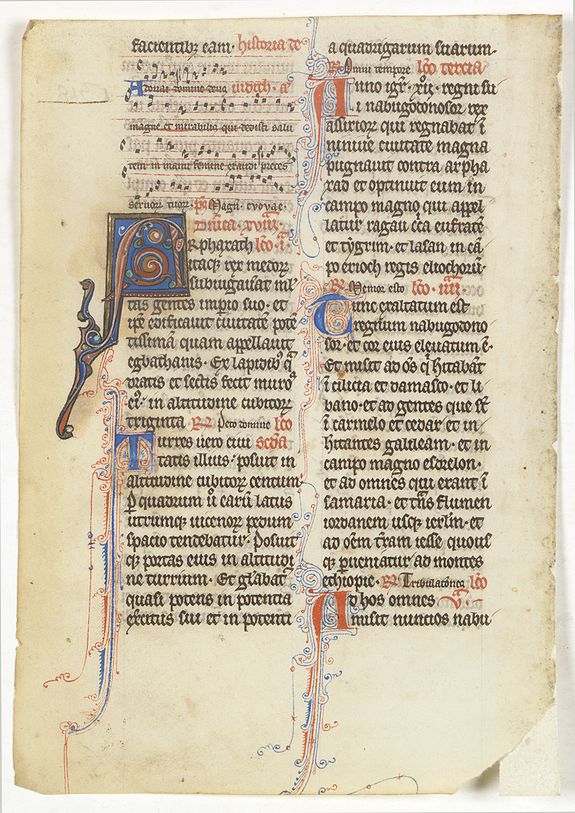 facientibꝫ eam. historia de
Adonai domine deus iudith. aͣ
magne et mirabilis qui dedisti salu
tem in manu femine exaudi preces
seruoꝝ tuoꝝ. p̄s Magn̄. evovae.
Dn̄ica. xviii.
ARpharath lc̄o. i.
itaqꝫ rex medoꝝ
subiugauat ml̄
tas gentes imp̄io suo. et
ip̄e edificauit ciuitatē potē
tissimā quam appellauit
egbathanis. Ex lapidibꝰ q̄
dratis et sectis fecit muroˢ
eiꝰ. in altitudine cubitoꝝ
triginta. R̄ Peto domine lc̄o
Turres uero eius sc̄da.
tatis illius. posuit in
altitudine cubitoꝝ centum
ꝑ quadrum ū eaꝝ latus
utrumqꝫ uicenoꝝ pedum
spacio tendebatur. Posuit
qꝫ portas eius in altitudi
ne turrium. Et gl̄abat̄
quasi potens in potentia
exercitus sui et in potenti
a quadrigarum suarum.
R̄ Omni tempore lc̄o tercia
Anno igr̄. xii. regni su
i nabugodonosor rex
assirioꝝ qui regnabat ī
niniue ciuitate magna
pugnauit contra arpha
xad et optinuit eum in
campo magno qui appel
latur ragau c̄ca eufratē
et tygrim. et iasan in cā
po erioch regis elicoꝝ.
R̄ Memor esto lc̄o. iiii.
Tunc exaltatum est
regnum nabugodono
sor. et cor eius eleuatum ē.
Et misit ad oēs q̄ hītabāt
ī cilicia et damasco. et li
bano. et ad gentes que sūt
ī carmelo et cedar et in
hītantes galileam. et in
campo magno esdrelon.
et ad omnes qui erant ī
samaria. et trās flumen
iordanem usqꝫ ierl̄m. et
ad oēm t̄ram iesse quous
qꝫ ꝑueniatur ad montes
ethiopie. R̄ Tribulatōnes lc̄o
Ad hos omnes v.
misit nuncios nabu